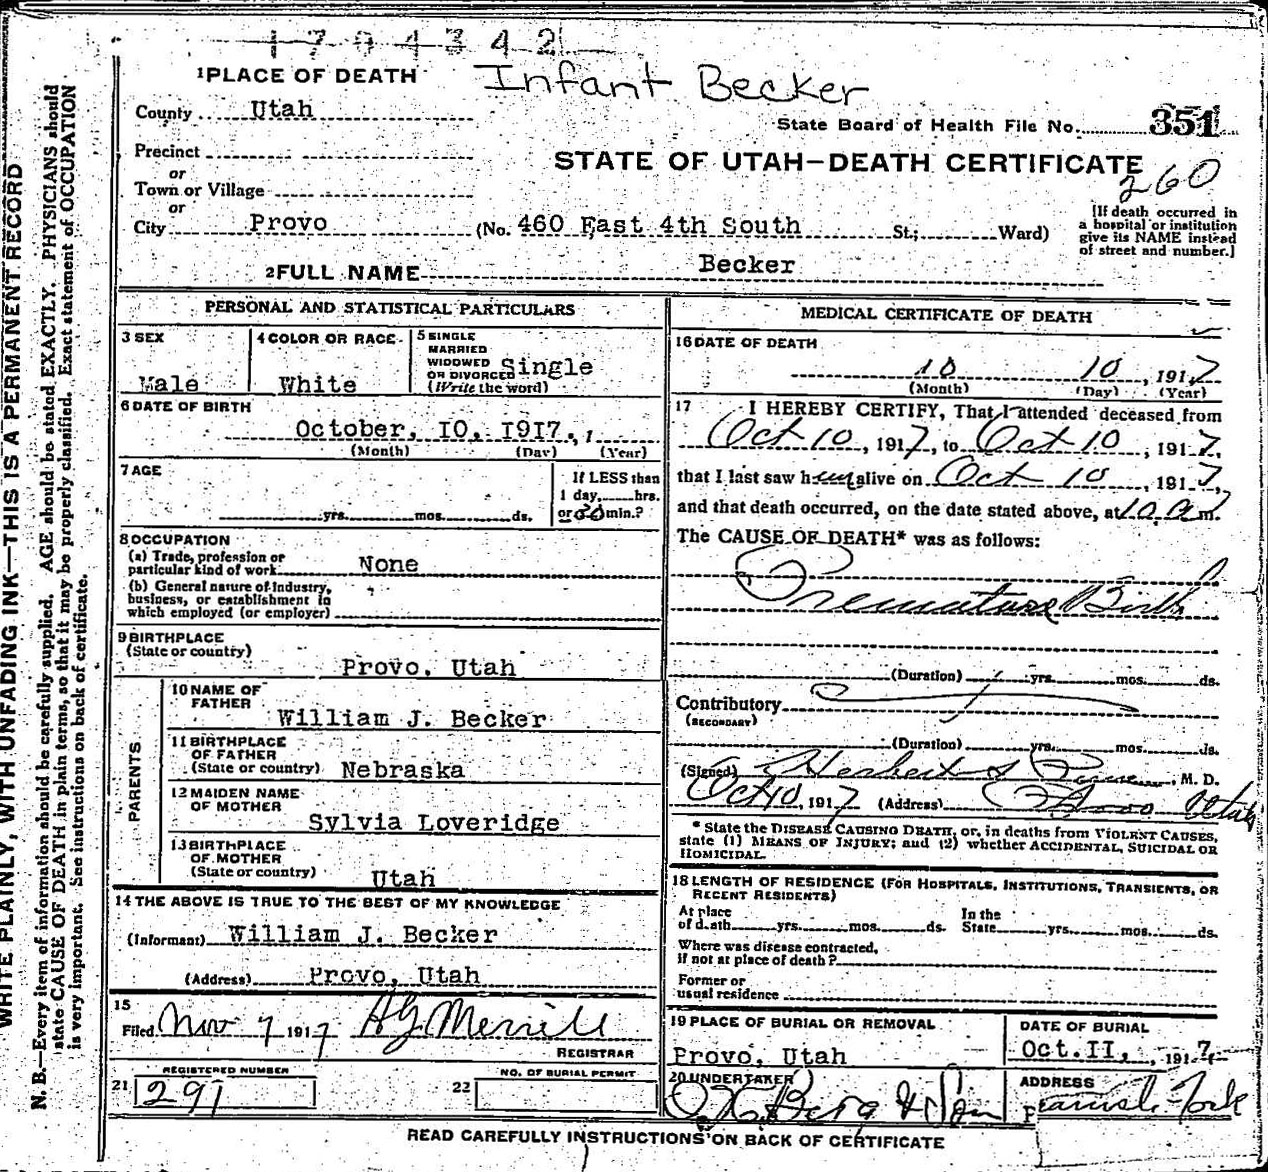 1704342
Infant Becker
1 PLACE OF DEATH
County Utah
State Board of Health File No. 351
Precinct
STATE OF UTAH—DEATH CERTIFICATE
260
or
Town or Village
or
City Provo (No. 460 East 4th South St.; Ward)
[If death occurred in
a hospital or institution
give its NAME instead
of street and number.]
2 FULL NAME Becker
PERSONAL AND STATISTICAL PARTICULARS
3 SEX
Male
4 COLOR OR RACE
White
5 SINGLE
MARRIED
WIDOWED
OR DIVORCED Single
(Write the word)
6 DATE OF BIRTH
October, IO, I9I7, 1
(Month) (Day) (Year)
7 AGE
yrs. mos. ds.
If LESS than
1 day, hrs.
or 20 min.?
8 OCCUPATION
(a) Trade, profession or
particular kind of work None
(b) General nature of industry,
business, or establishment in
which employed (or employer)
9 BIRTHPLACE
(State or country)
Provo, Utah
PARENTS
10 NAME OF
FATHER
William J. Becker
11 BIRTHPLACE
OF FATHER
(State or country) Nebraska
12 MAIDEN NAME
OF MOTHER
Sylvia Loveridge
13 BIRTHPLACE
OF MOTHER
(State or country) Utah
14 THE ABOVE IS TRUE TO THE BEST OF MY KNOWLEDGE
(Informant) William J. Becker
(Address) Provo, Utah
15
Filed Nov 7 1917 A G Merrill
REGISTRAR
REGISTERED NUMBER
21 291
NO. OF BURIAL PERMIT
22
MEDICAL CERTIFICATE OF DEATH
16 DATE OF DEATH
10 10, 1917
(Month) (Day) (Year)
17 I HEREBY CERTIFY, That I attended deceased from
Oct 10, 1917, to Oct 10, 1917,
that I last saw him alive on Oct 10, 1917,
and that death occurred, on the date stated above, at 10 a m.
The CAUSE OF DEATH* was as follows:
Premature Birth
(Duration) yrs. mos. ds.
Contributory
(SECONDARY)
(Duration) yrs. mos. ds.
(Signed) Herbert S, M. D.
Oct 10, 1917 (Address) Provo Utah
* State the DISEASE CAUSING DEATH, or, in deaths from VIOLENT CAUSES,
state (1) MEANS OF INJURY; and (2) whether ACCIDENTAL, SUICIDAL OR
HOMICIDAL.
18 LENGTH OF RESIDENCE (FOR HOSPITALS, INSTITUTIONS, TRANSIENTS, OR
RECENT RESIDENTS)
At place In the
of death yrs. mos. ds. State yrs. mos. ds.
Where was disease contracted,
if not at place of death?
Former or
usual residence
19 PLACE OF BURIAL OR REMOVAL
Provo, Utah
DATE OF BURIAL
Oct. II, 1917
20 UNDERTAKER
O. H. Berg & Son
ADDRESS
Spanish Fork
READ CAREFULLY INSTRUCTIONS ON BACK OF CERTIFICATE
WRITE PLAINLY, WITH UNFADING INK—THIS IS A PERMANENT RECORD
N. B.—Every item of information should be carefully supplied. AGE should be stated EXACTLY. PHYSICIANS should
state CAUSE OF DEATH in plain terms, so that it may be properly classified. Exact statement of OCCUPATION
is very important. See instructions on back of certificate.